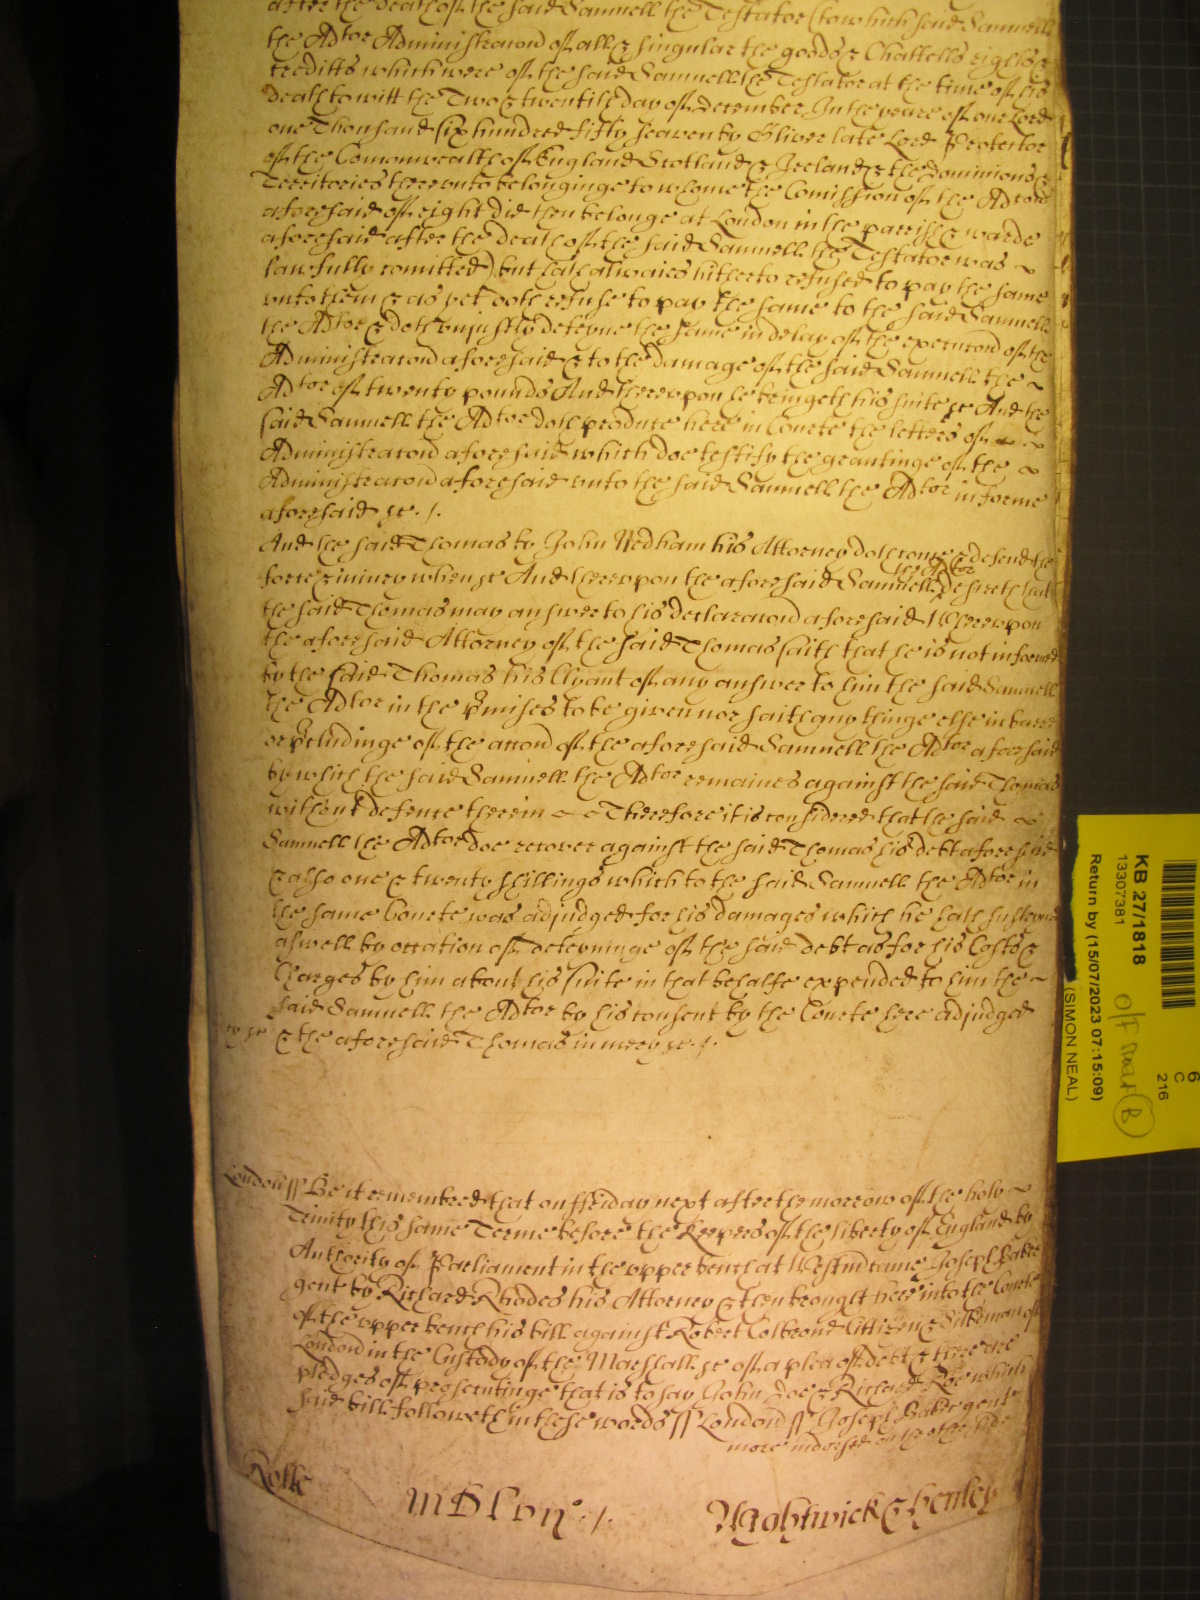 after the death of the said Samuell the Testator (to which said Samuell
the Adtor Administracon of all & singular the goods & Chattells rights &
creditts which were of the said Samuell the Testator at the time of his
death to witt the Two & twentith day of December In the yeare of our Lord
one Thousand six hundred fifty seaven by Oliver late Lord Protector
of the Comonwealth of England Scotland & Ireland & the Dominions &
Territories thereunto belonginge to whome the Comission of the Adcon
aforesaid of right did then belonge at London in the parrish & warde
aforesaid after the death of the said Samuell the Testator was
lawfully comitted) but hath alwaies hitherto refused to pay the same
unto them & as yet doth refuse to pay the same to the said Samuell
the Adtor & doth unjustly deteyne the same in delay of the execucon of the
Administracon aforesaid & to the damage of the said Samuell the
Adtor of twenty pounds And thereupon he bringeth his suite &c And the
said Samuell the Adtor doth produce here in Courte the letters of
Administracon aforesaid which doe testify the grantinge of the
Administracon aforesaid unto the said Samuell the Adtor in forme
aforesaid &c ./.
And the said Thomas by John Nedham his Attorney doth come & defend the
force & iniury when &c And thereupon the aforesaid Samuell the Adtor desireth that
the said Thomas may answer to his declaracon aforesaid Whereupon
the aforesaid Attorney of the said Thomas saith that he is not informed
by the said Thomas his Clyant of any answer to him the said Samuell
the Adtor in the pmises to be given nor saith any thinge else in barre
or pcludinge of the accon of the aforesaid Samuell the Adtor aforesaid
by which the said Samuell the Adtor remaines against the said Thomas
without defence therein Therefore it is considered that the said
Samuell the Adtor doe recover against the said Thomas his debt aforesaid
& also one & twenty shillings which to the said Samuell the Adtor in
the same Courte was adjudged for his damages which he hath susteyned
aswell by occation of deteyninge of the said debt as for his Costs &
Charges by him about his suite in that behalfe expended to him the
said Samuell the Adtor by his consent by the Courte here adjudged
& the aforesaid Thomas in mercy &c ./.
London ss Be it remembred that on ffriday next after the morrow of the holy
Trinity this same Terme before the Keepers of the liberty of England by
Authority of Parliament in the upper bench at Westm came Joseph Baker
gent by Richard Rhodes his Attorney & then brought here into the Courte
of the upper bench his bill against Robert Colbrond Cittizen & Silkeman of
London in the Custody of the Marshall &c of a plea of debt & there are
pledges of prosecutinge that is to say John Doe & Richard Roe which
said bill followeth in these words ss London ss Joseph Baker gent
more indorsed on the other side
Rolle
Wightwick & Henley
KB 27/1818
13307381
Return by (15/07/2023 07:15:09)
(SIMON NEAL)
6
C
216
B